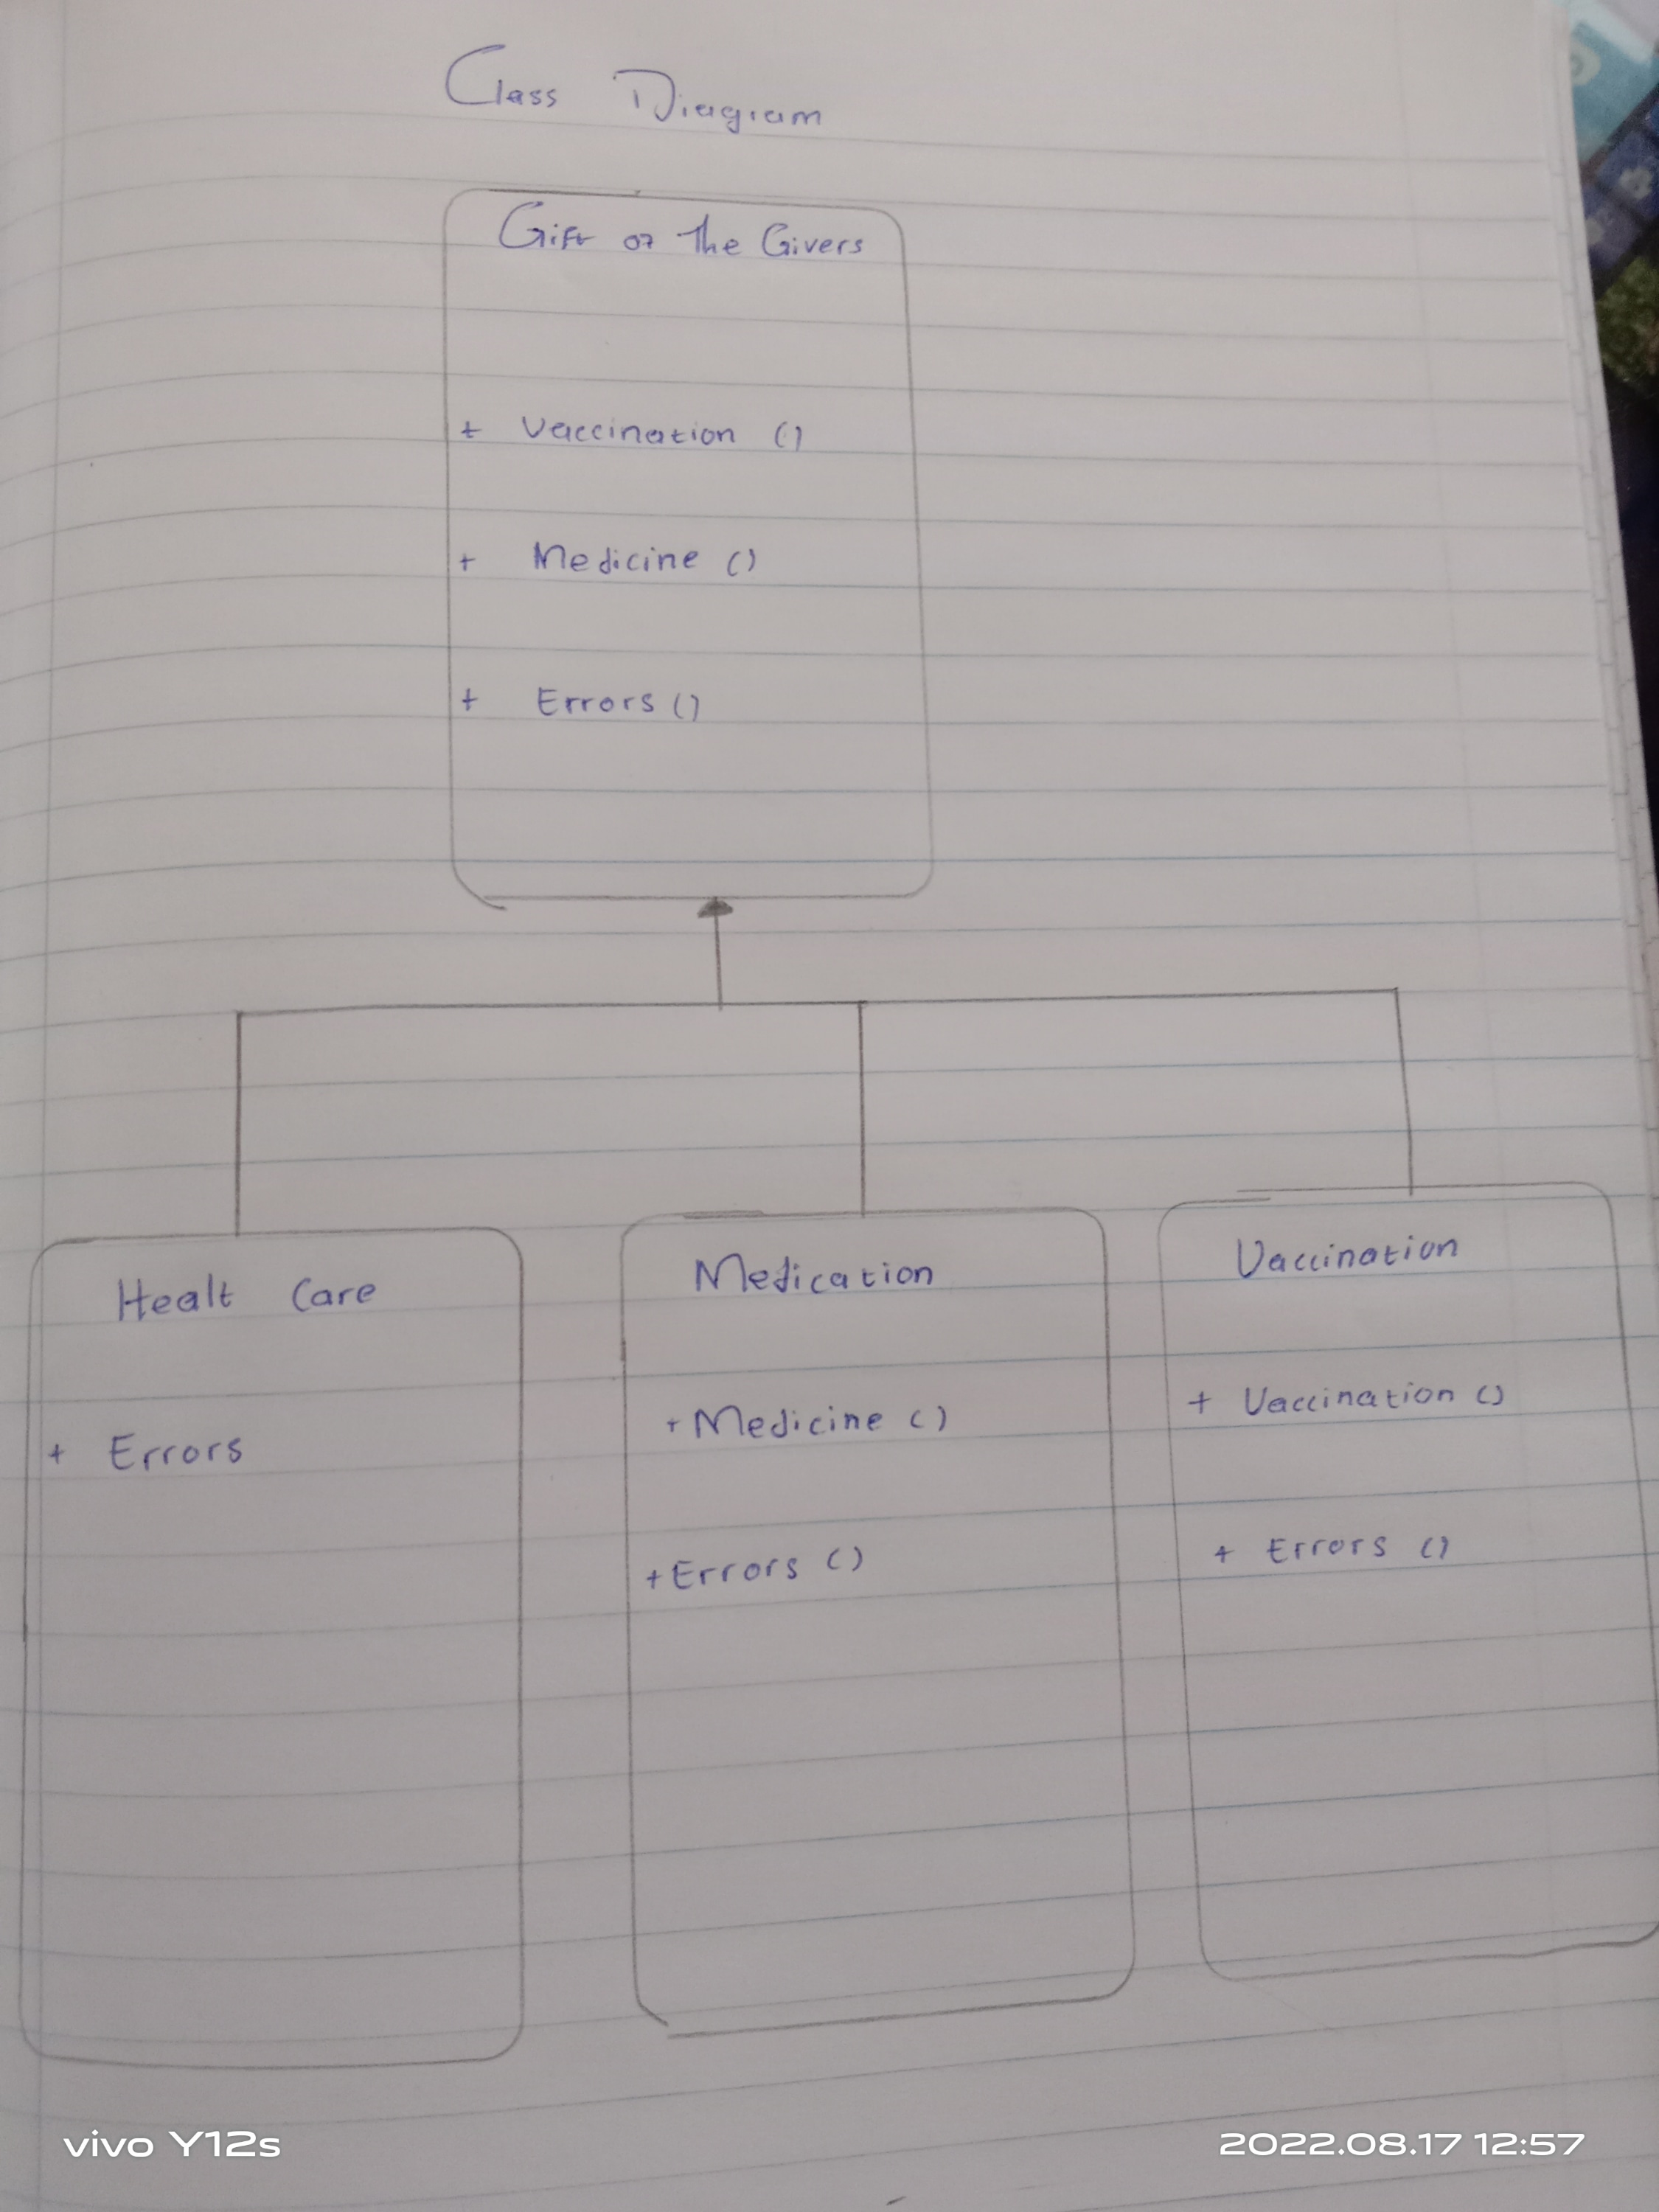 Class Diagram
Gift of The Givers
+ Vaccination ()
+ Medicine ()
+ Errors ()
Healt Care
+ Errors
Medication
+ Medicine ()
+ Errors ()
Vaccination
+ Vaccination ()
+ Errors ()
vivo Y12s
2022.08.17 12:57